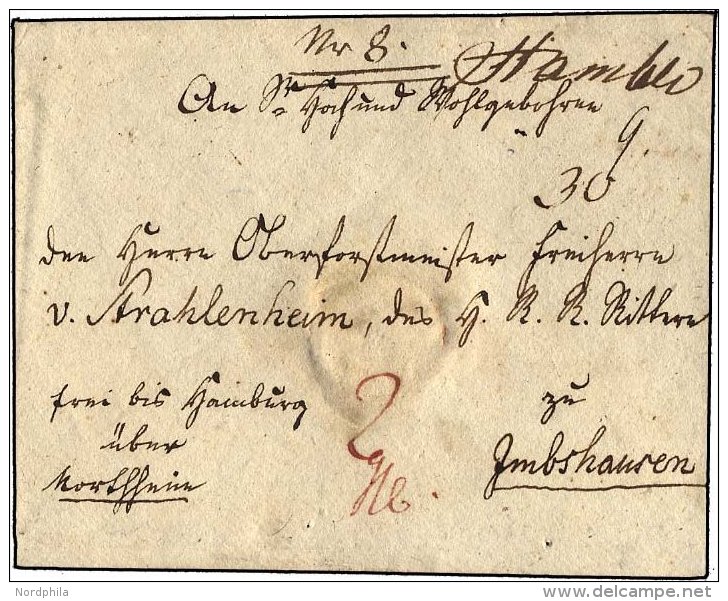 Nr 8.
Hambło
An Sr Hoch und Wohlgebohren
9.
30
den Herrn Oberforstmeister Freiherrn
v. Strahlenheim, des H. R. R. Rittern
frei bis Hamburg
zu
über
Imbshausen
Northheim
2
Nordphila
delcampe.net